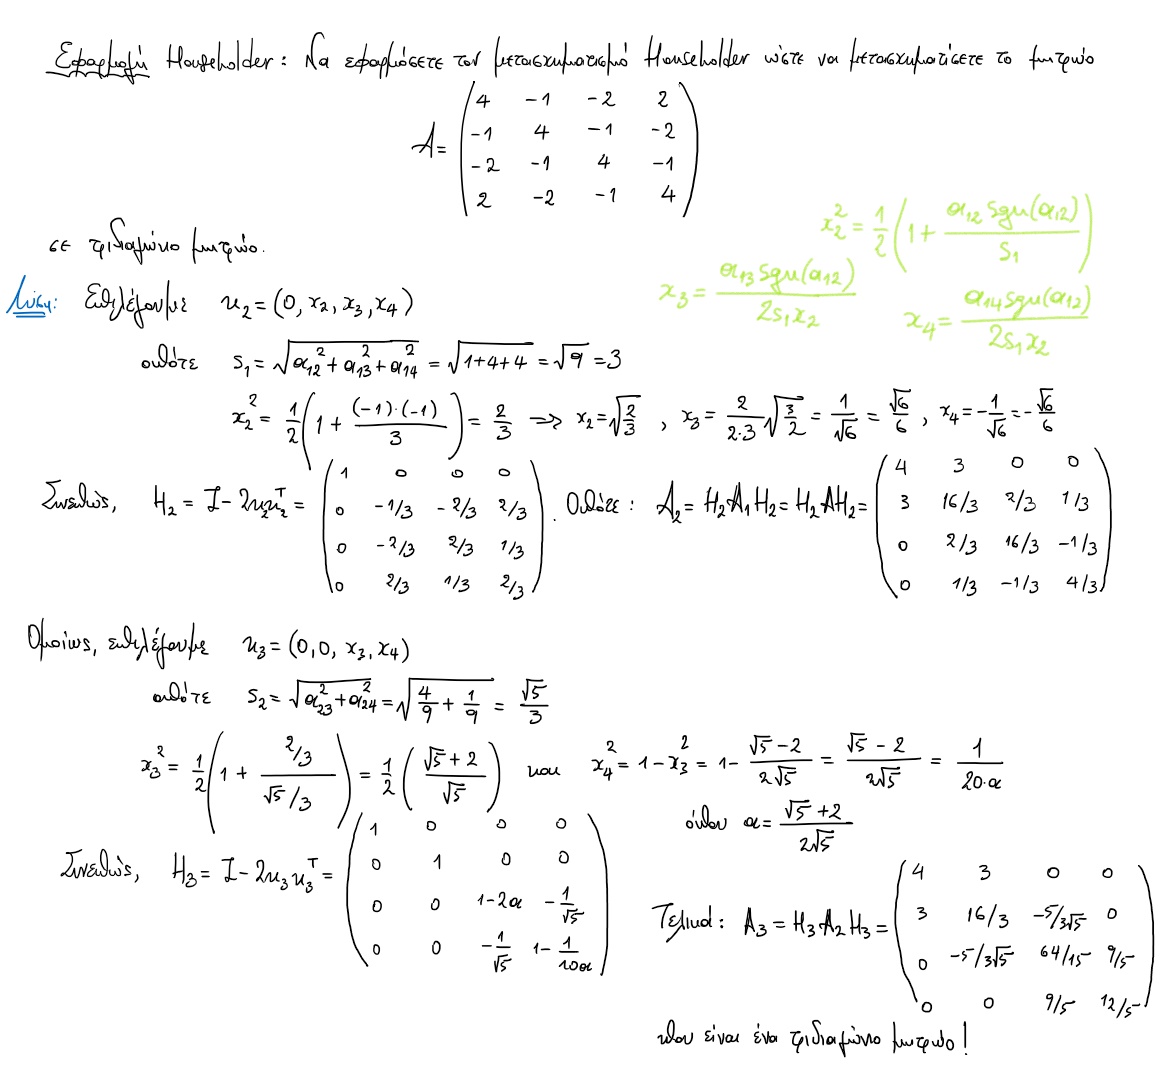 Εφαρμογή Householder: Να εφαρμόσετε τον μετασχηματισμό Householder ώστε να μετασχηματίσετε το μητρώο
A = ( 4 -1 -2 2
-1 4 -1 -2
-2 -1 4 -1
2 -2 -1 4 )
σε τριδιαγώνιο μητρώο.
x₂² = 1/2 (1 + α₁₂ sgn(α₁₂)/s₁)
x₃ = α₁₃ sgn(α₁₂)/2s₁x₂
x₄ = α₁₄ sgn(α₁₂)/2s₁x₂
Λύση: Επιλέγουμε u₂ = (0, x₂, x₃, x₄)
οπότε s₁ = √(α₁₂² + α₁₃² + α₁₄²) = √(1+4+4) = √9 = 3
x₂² = 1/2 (1 + (-1)·(-1)/3) = 2/3 => x₂ = √(2/3) , x₃ = 2/2·3 √(3/2) = 1/√6 = √6/6 , x₄ = -1/√6 = -√6/6
Συνεπώς, H₂ = I - 2u₂u₂ᵀ = ( 1 0 0 0
0 -1/3 -2/3 2/3
0 -2/3 2/3 1/3
0 2/3 1/3 2/3 ) . Οπότε: A₂ = H₂A₁H₂ = H₂AH₂ = ( 4 3 0 0
3 16/3 2/3 1/3
0 2/3 16/3 -1/3
0 1/3 -1/3 4/3 )
Ομοίως, επιλέγουμε u₃ = (0, 0, x₃, x₄)
οπότε s₂ = √(α₂₃² + α₂₄²) = √(4/9 + 1/9) = √5/3
x₃² = 1/2 (1 + 2/3 / √5/3) = 1/2 (√5+2 / √5) και x₄² = 1 - x₃² = 1 - √5-2/2√5 = √5-2/2√5 = 1/20·α
όπου α = √5+2/2√5
Συνεπώς, H₃ = I - 2u₃u₃ᵀ = ( 1 0 0 0
0 1 0 0
0 0 1-2α -1/√5
0 0 -1/√5 1-1/10α )
Τελικά: A₃ = H₃A₂H₃ = ( 4 3 0 0
3 16/3 -5/3√5 0
0 -5/3√5 64/15 9/5
0 0 9/5 12/5 )
που είναι ένα τριδιαγώνιο μητρώο!